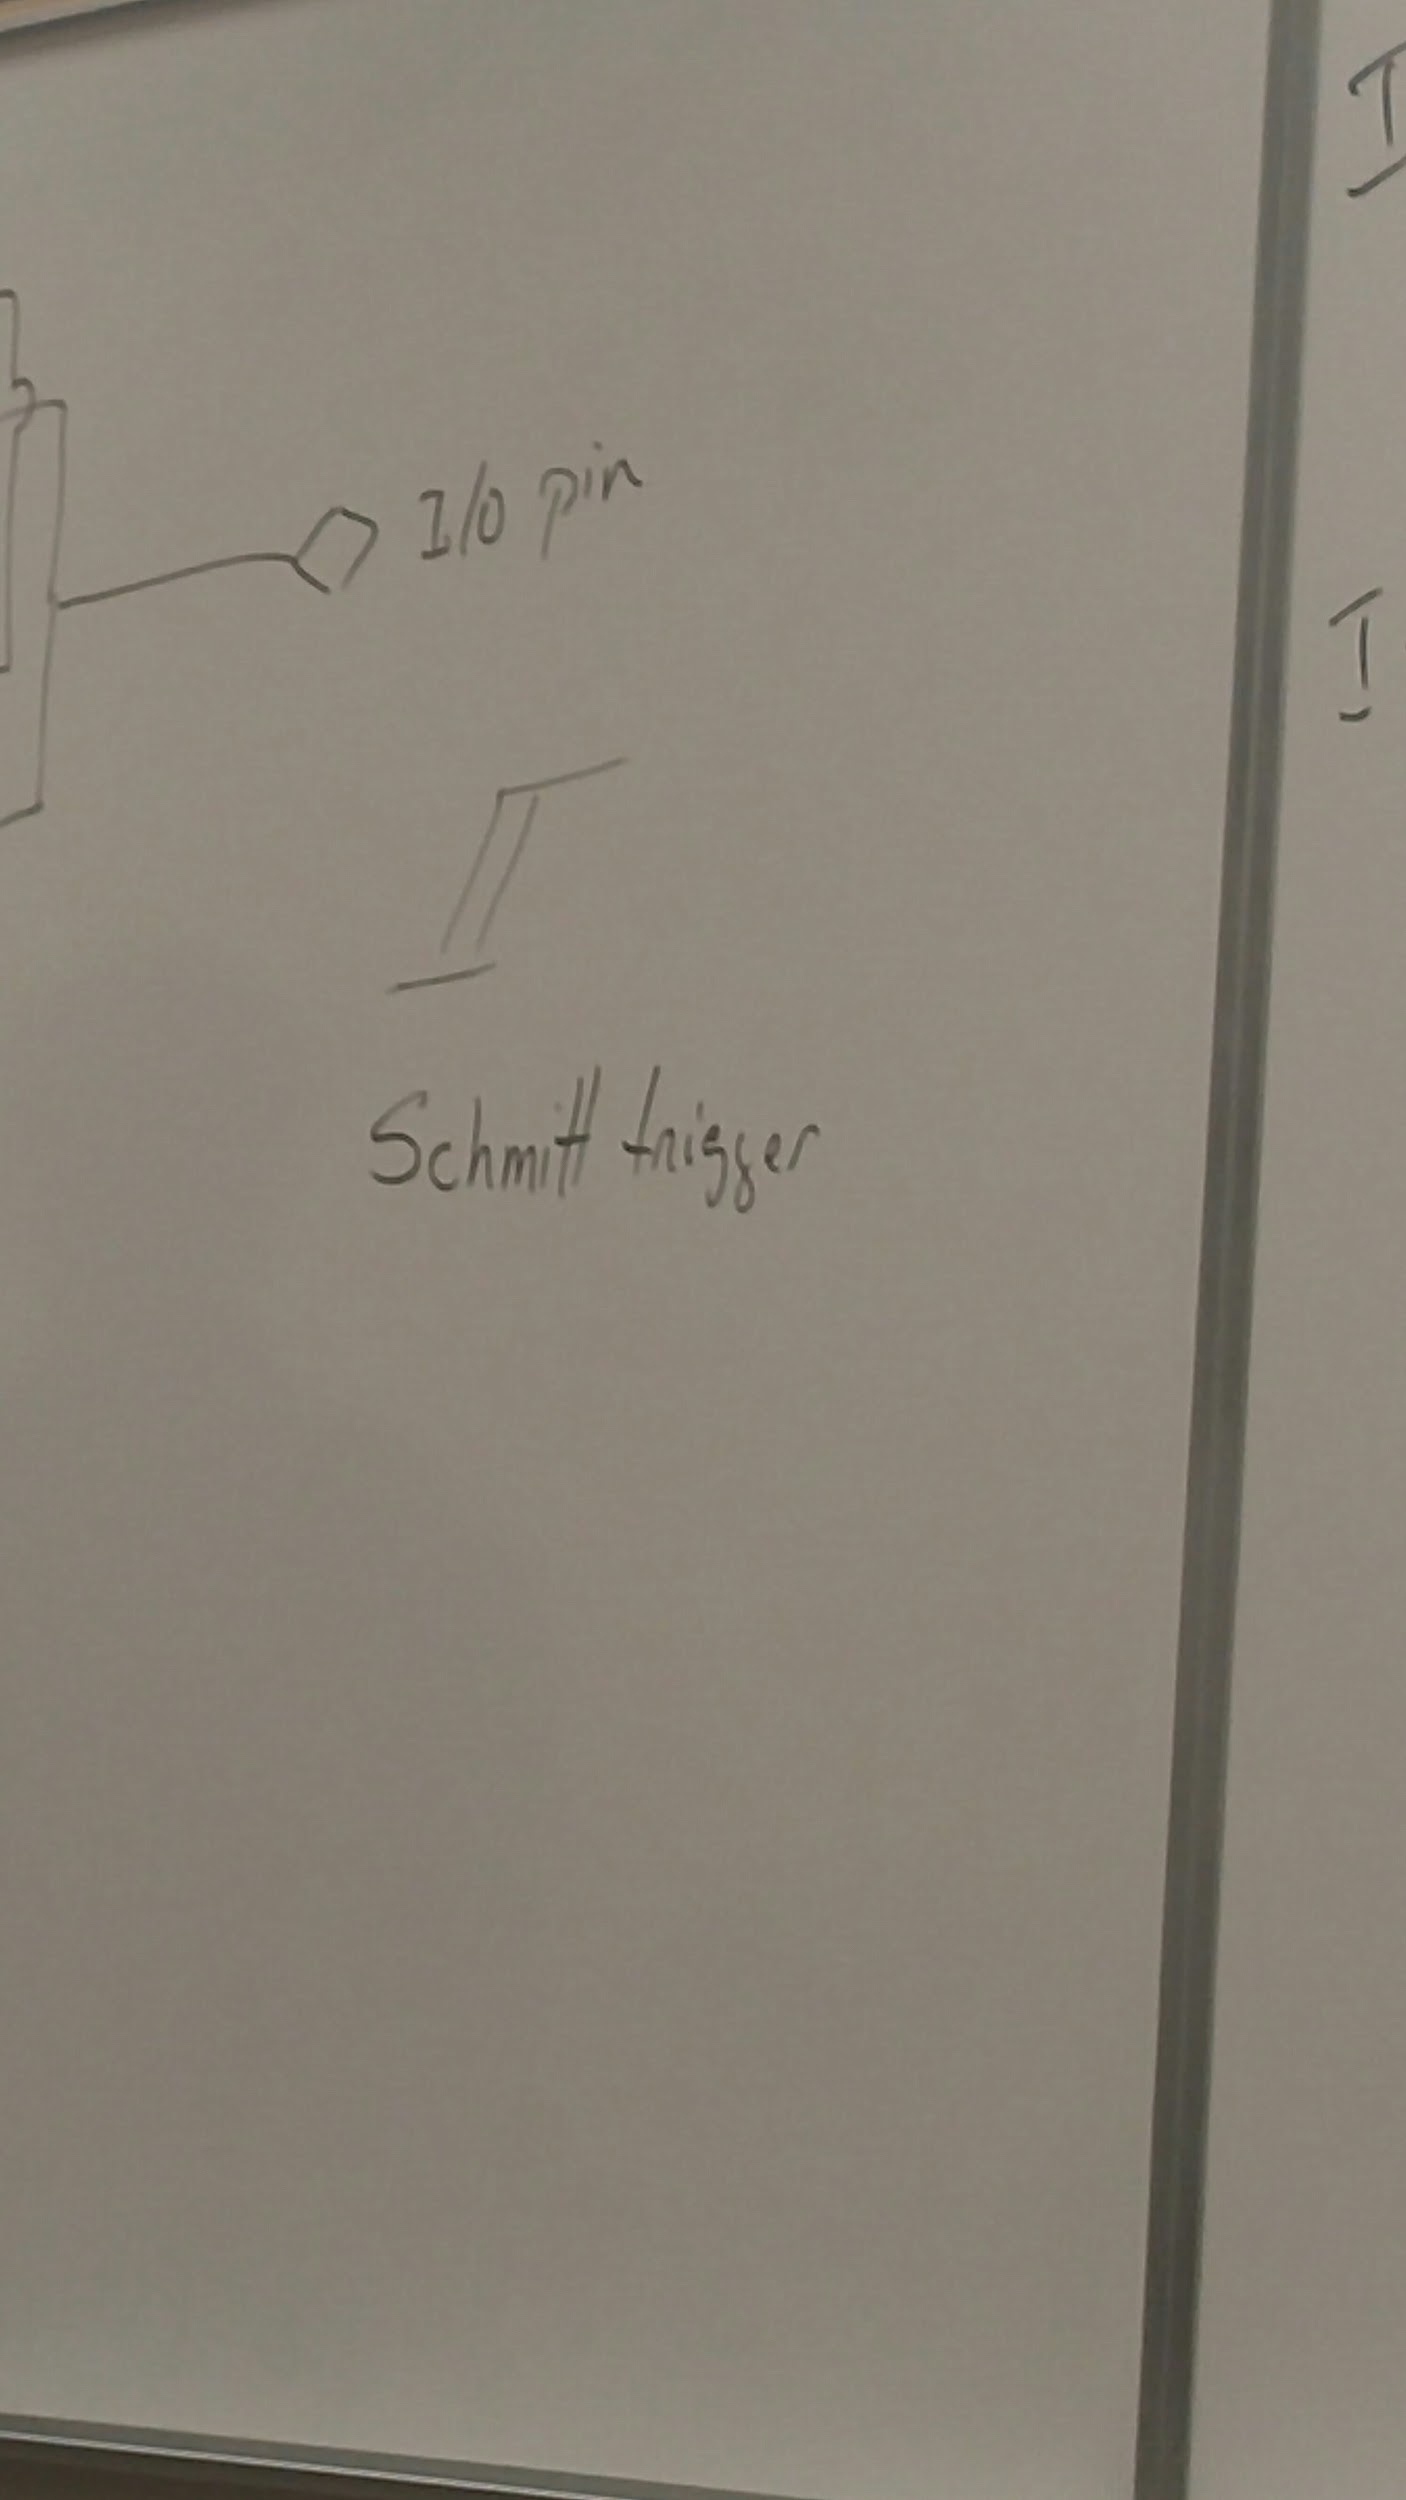 I/O pin
Schmitt trigger
I
I